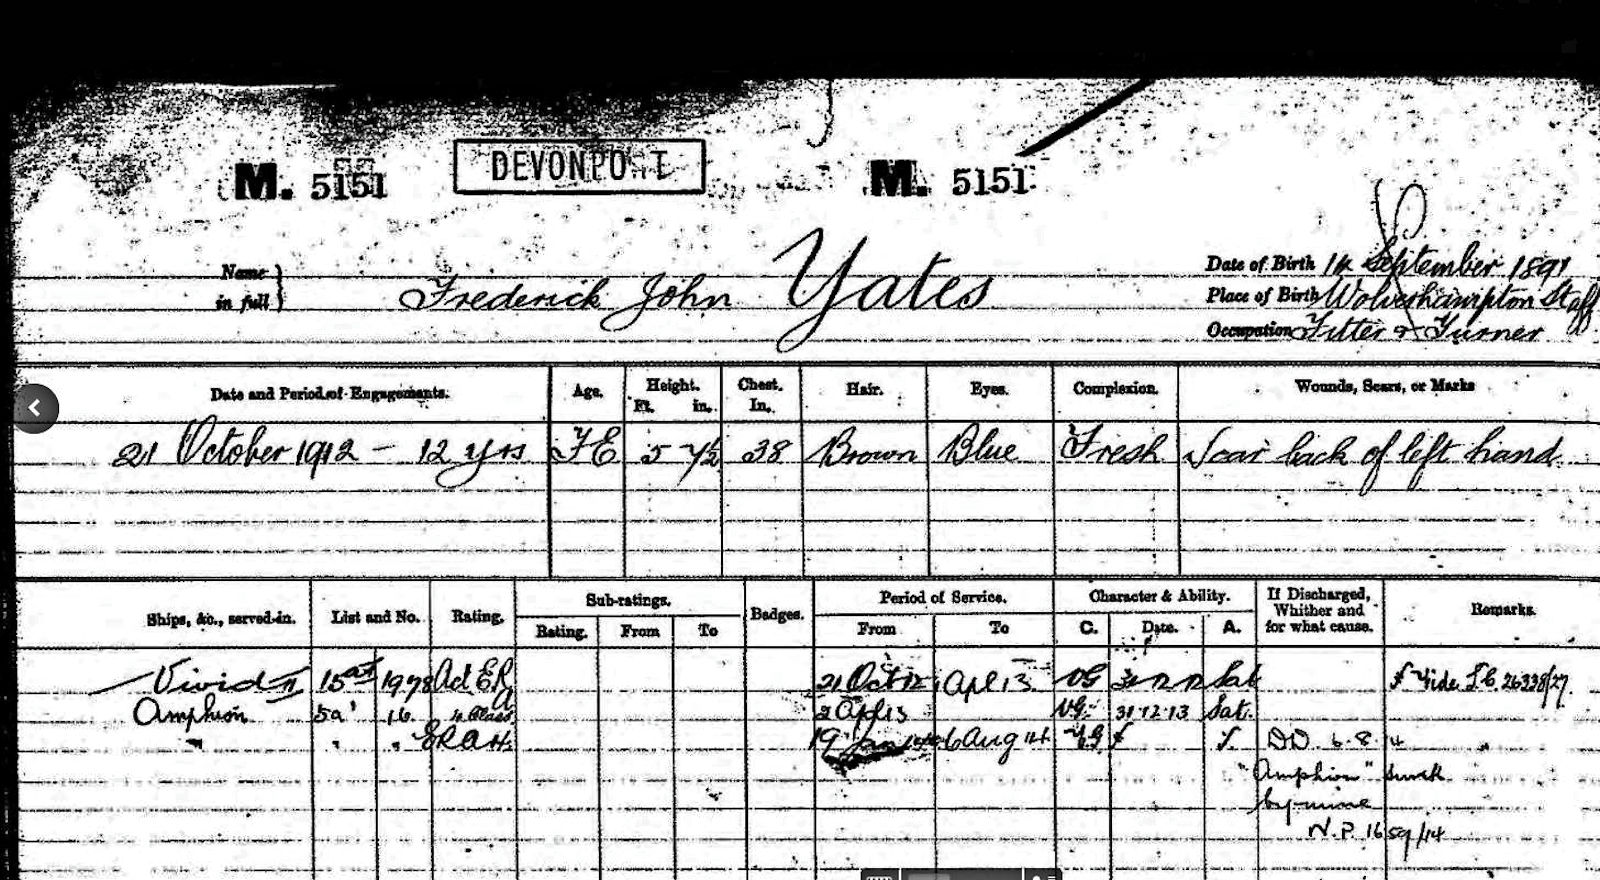 M. 5151 DEVONPO.T M. 5151
Name in full } Frederick John Yates
Date of Birth September 1891
Place of Birth Wolverhampton Staff
Occupation Fitter & Turner
Date and Period of Engagements. Age. Height. Ft. in. Chest. In. Hair. Eyes. Complexion. Wounds, Scars, or Marks
21 October 1912 - 12 yrs 5 7½ 38 Brown Blue Fresh Scar back of left hand
Ships, &c., served in. List and No. Rating. Sub-ratings. Rating. From To Badges. Period of Service. From To Character & Ability. C. Date. A. If Discharged, Whither and for what cause. Remarks.
Vivid II 15a 1978 Act ERA 21 Oct 12 1 Apl 13 VG 31 12 12 Sat Vide
Amphion 5a 16 4 Class 2 Apl 13 VG 31·12·13 Sat.
" " " ERA 4 19 Jan 6 Aug 14 VG DD 6·8·14
"Amphion" sunk
by mine
N.P. 1659/14